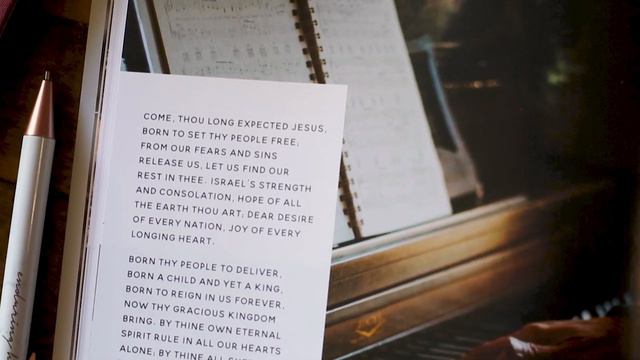 COME, THOU LONG EXPECTED JESUS,
BORN TO SET THY PEOPLE FREE;
FROM OUR FEARS AND SINS
RELEASE US, LET US FIND OUR
REST IN THEE. ISRAEL'S STRENGTH
AND CONSOLATION, HOPE OF ALL
THE EARTH THOU ART; DEAR DESIRE
OF EVERY NATION, JOY OF EVERY
LONGING HEART.
BORN THY PEOPLE TO DELIVER,
BORN A CHILD AND YET A KING,
BORN TO REIGN IN US FOREVER,
NOW THY GRACIOUS KINGDOM
BRING. BY THINE OWN ETERNAL
SPIRIT RULE IN ALL OUR HEARTS
ALONE; BY THINE